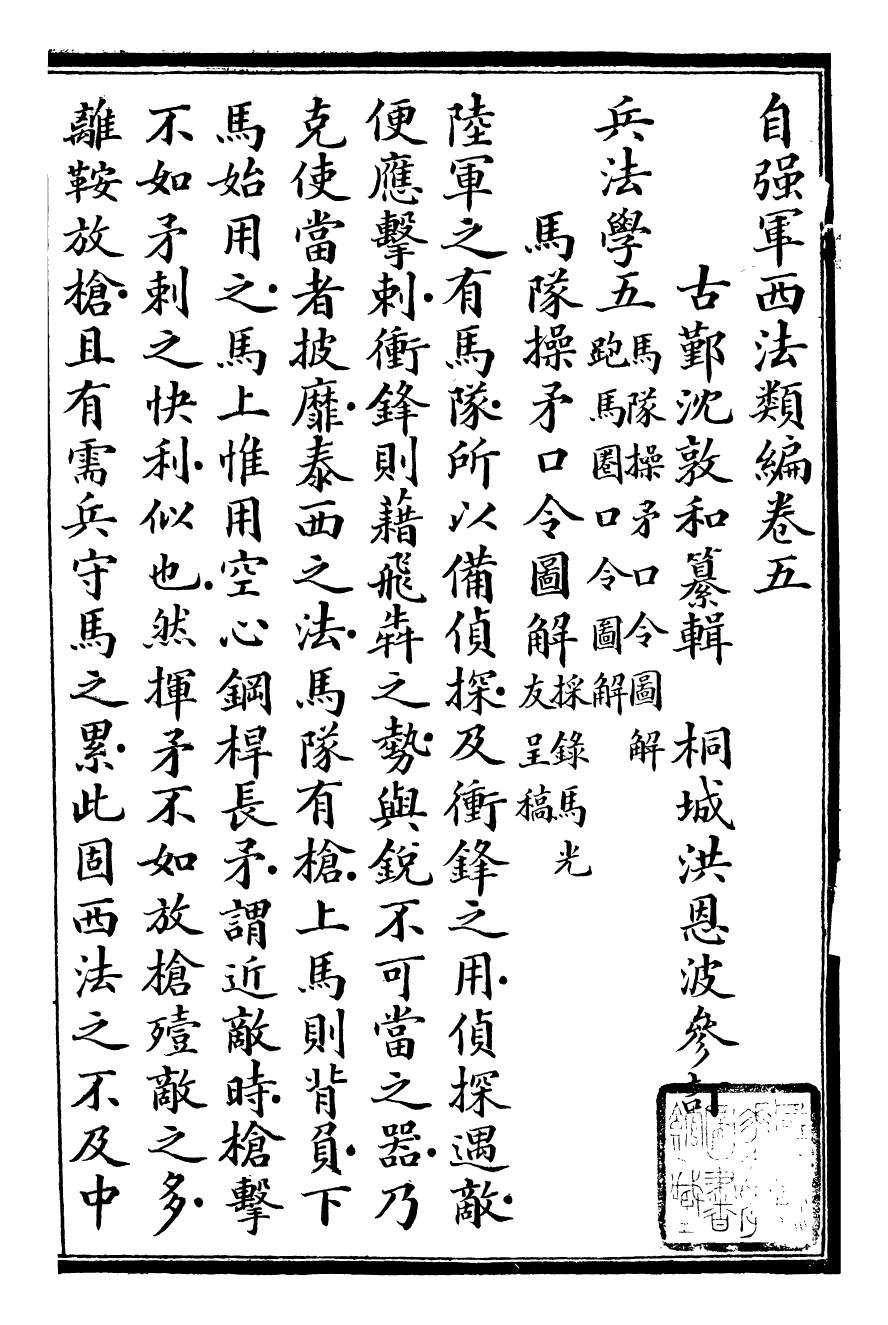 自强軍西法類編卷五
古鄞沈敦和纂輯　桐城洪恩波參訂
兵法學五
馬隊操矛口令圖解
跑馬圈口令圖解
馬隊操矛口令圖解
採錄馬光
友呈稿
陸軍之有馬隊·所以備偵探·及衝鋒之用·偵探遇敵·
便應擊刺·衝鋒則藉飛犇之勢·與銳不可當之器·乃
克使當者披靡·泰西之法·馬隊有槍·上馬則背負·下
馬始用之·馬上惟用空心鋼桿長矛·謂近敵時·槍擊
不如矛刺之快利·似也·然揮矛不如放槍殪敵之多·
離鞍放槍·且有需兵守馬之累·此固西法之不及中